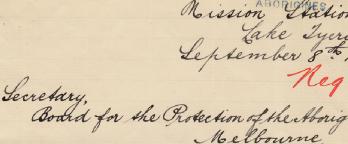 ABORIGINES
Mission Station
Lake Tyers
September 8th
Reg
Secretary,
Board for the Protection of the Aborig
Melbourne